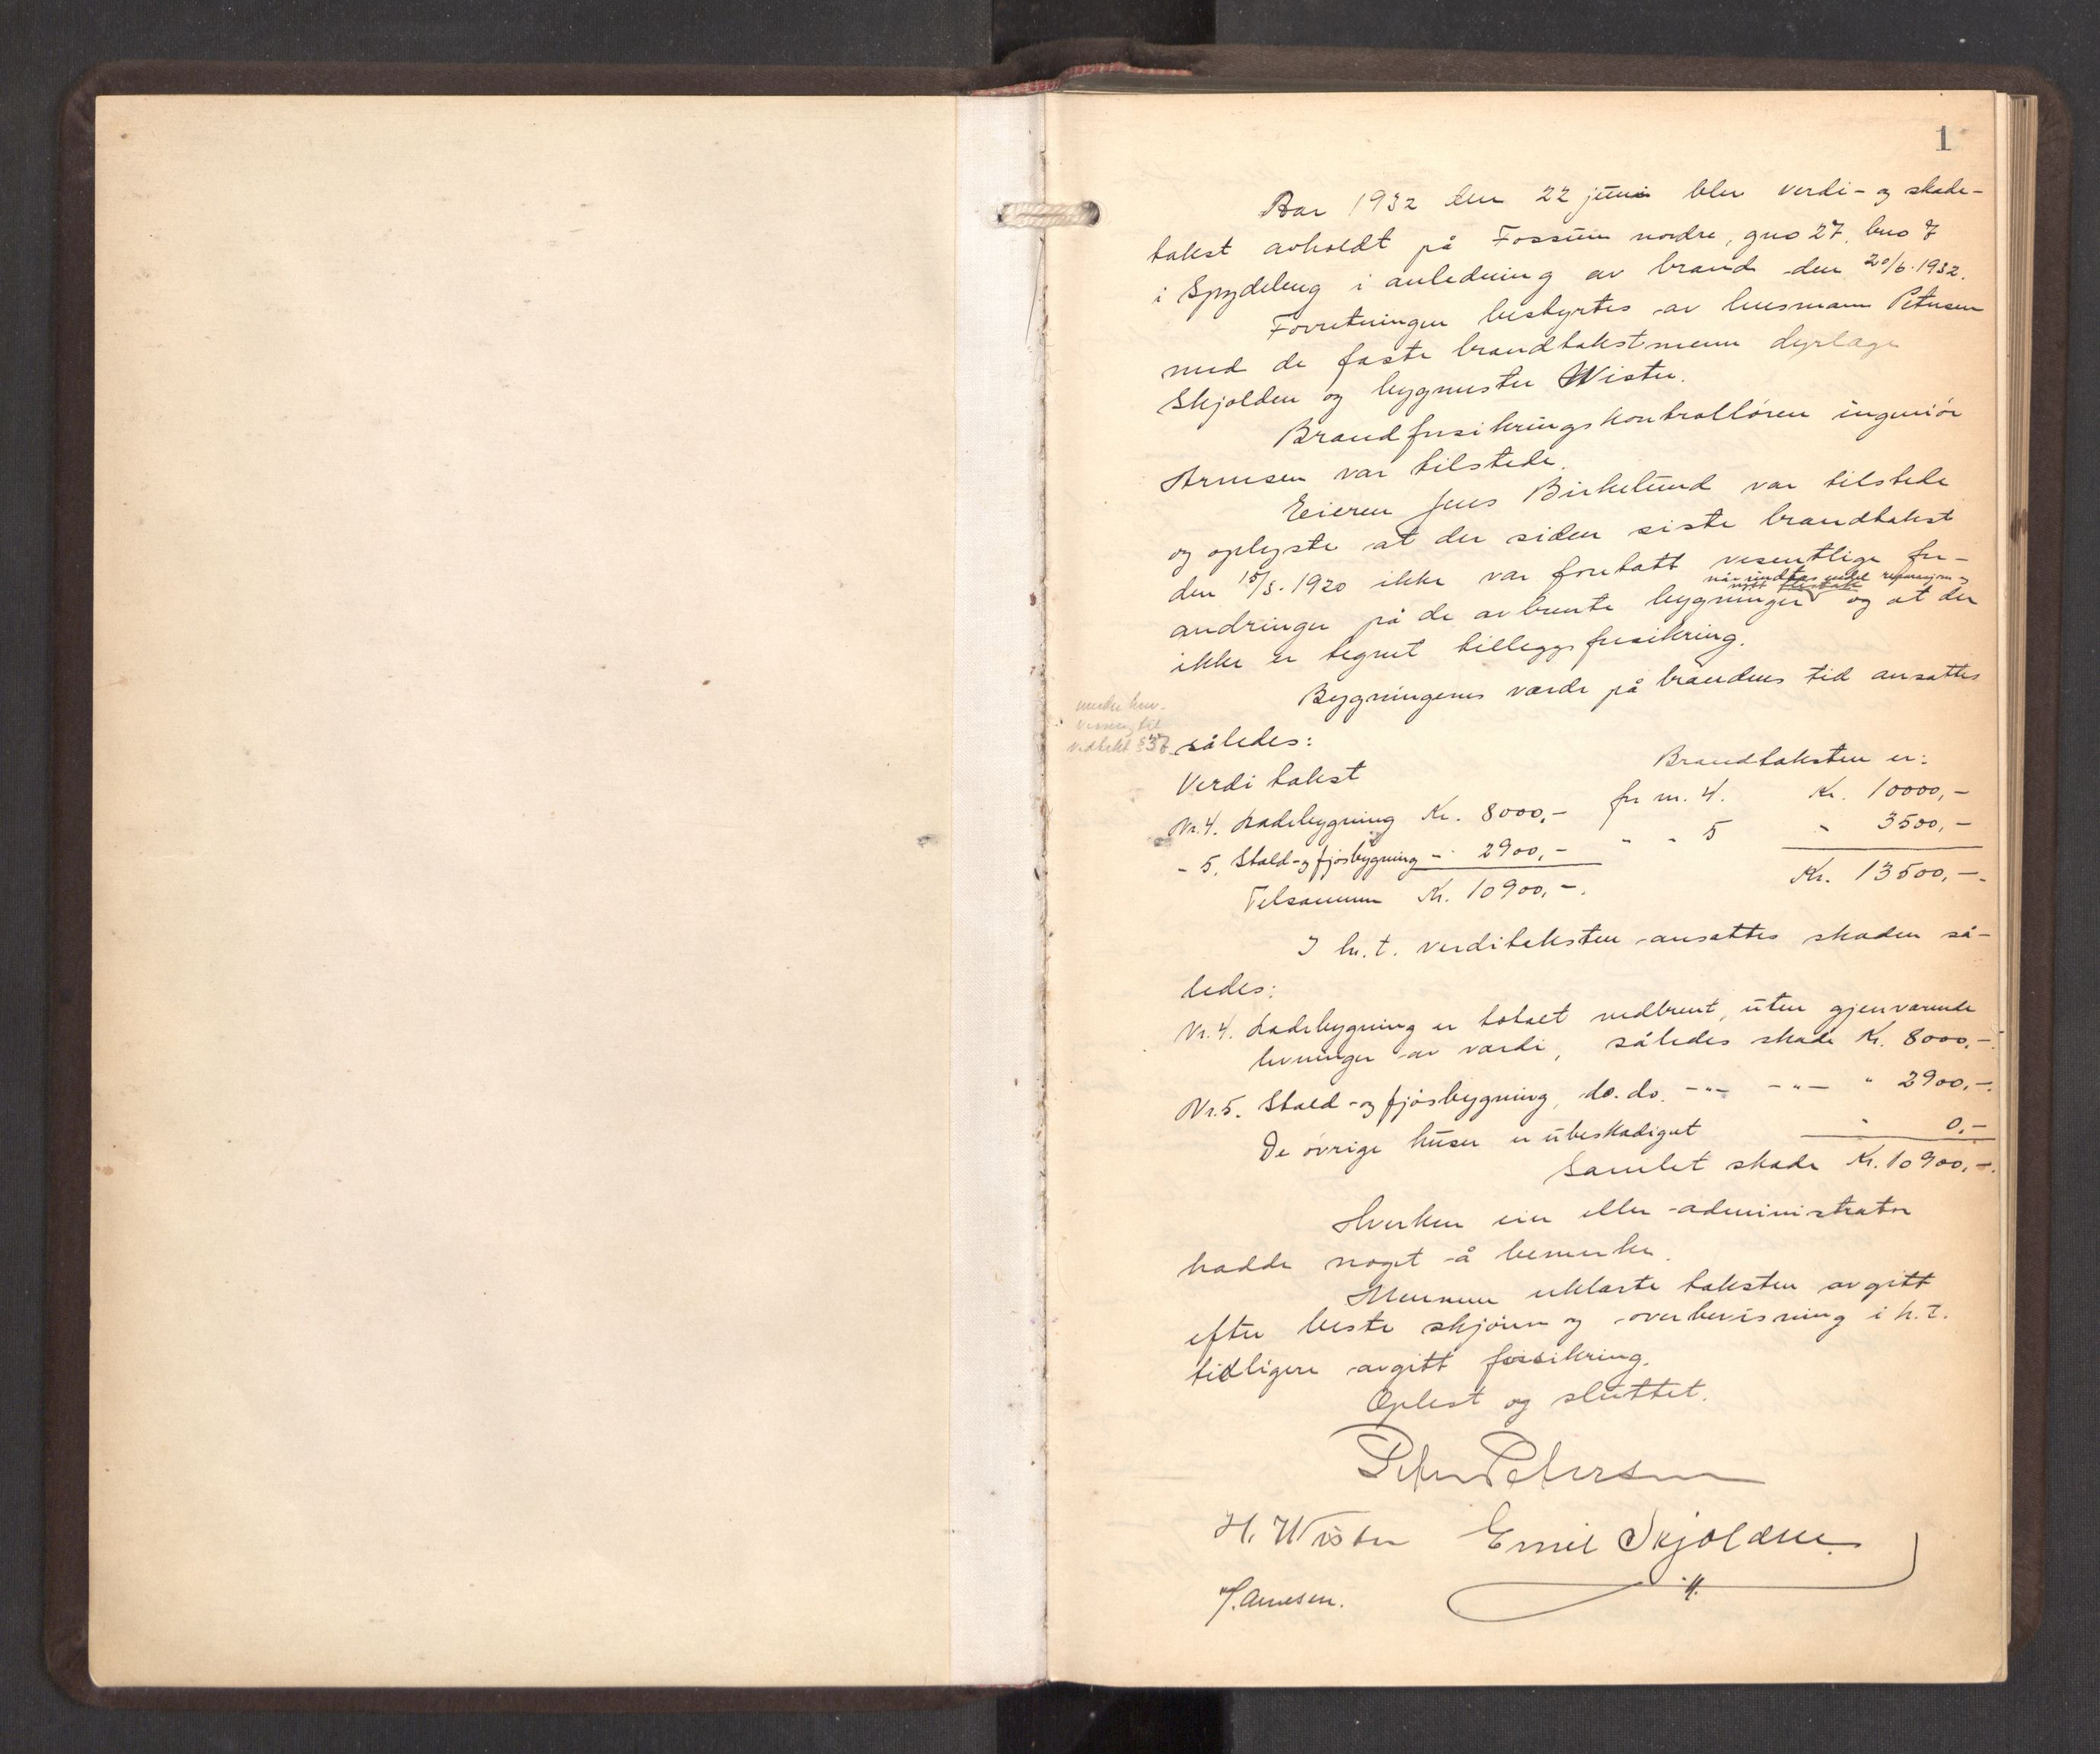 1
Aar 1932 den 22 juni blev verdi- og skade-
takst avholdt på Fossum nordre, gno 27, bno 7
i Spydeberg i anledning av brand den 20/6.1932.
Forretningen bestyrtes av lensmann Petersen
med de faste brandtakstmenn dyrlæge
Skjolden og bygmester Wister.
Brandforsikringskontrolløren ingeniør
Arnesen var tilstede.
Eieren Jens Birkelund var tilstede
og oplyste at der siden siste brandtakst
den 15/5.1920 ikke var foretatt vesentlige for-
når undtas endel reparasjon og
nytt
andringer på de avbrente bygninger og at der
ikke er tegnet tilleggsforsikring.
Bygningenes værdi på brandens tid ansattes
under hen-
visning til
vedtekt § 37
således:
Verditakst Brandtaksten er:
Nr. 4. Ladebygning Kr. 8000,- for nr. 4. Kr. 10000,-
- 5. Stald- og fjøsbygning - 2900,- " - 5 " 3500,-
Tilsammen Kr. 10900,-. Kr. 13500,-.
I h. t. verditaksten ansattes skaden så-
ledes:
Nr. 4. Ladebygning er totalt nedbrent, uten gjenværende
levninger av værdi, således skade Kr. 8000,-.
Nr. 5. Stald- og fjøsbygning, do. do. -"- -"- " 2900,-.
De øvrige huser er ubeskadiget " 0,-
Samlet skade Kr. 10900,-.
Hverken eier eller administrator
hadde noget å bemerke.
Mennene erklærte taksten avgitt
efter beste skjønn og overbevisning i h. t.
tidligere avgitt forsikring.
Oplest og sluttet.
Peter Petersen
H. Wister Emil Skjolden
H. Arnesen.